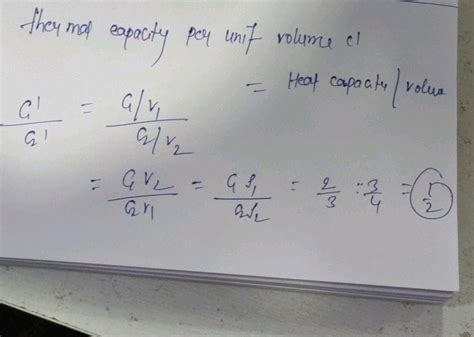 thermal capacity per unit volume c1
= Heat capacity / volume
C1' / C2' = C1/V1 / C2/V2
= C1 V2 / C2 V1 = C1 ρ1 / C2 ρ2 = 2/3 : 3/4 = 1/2